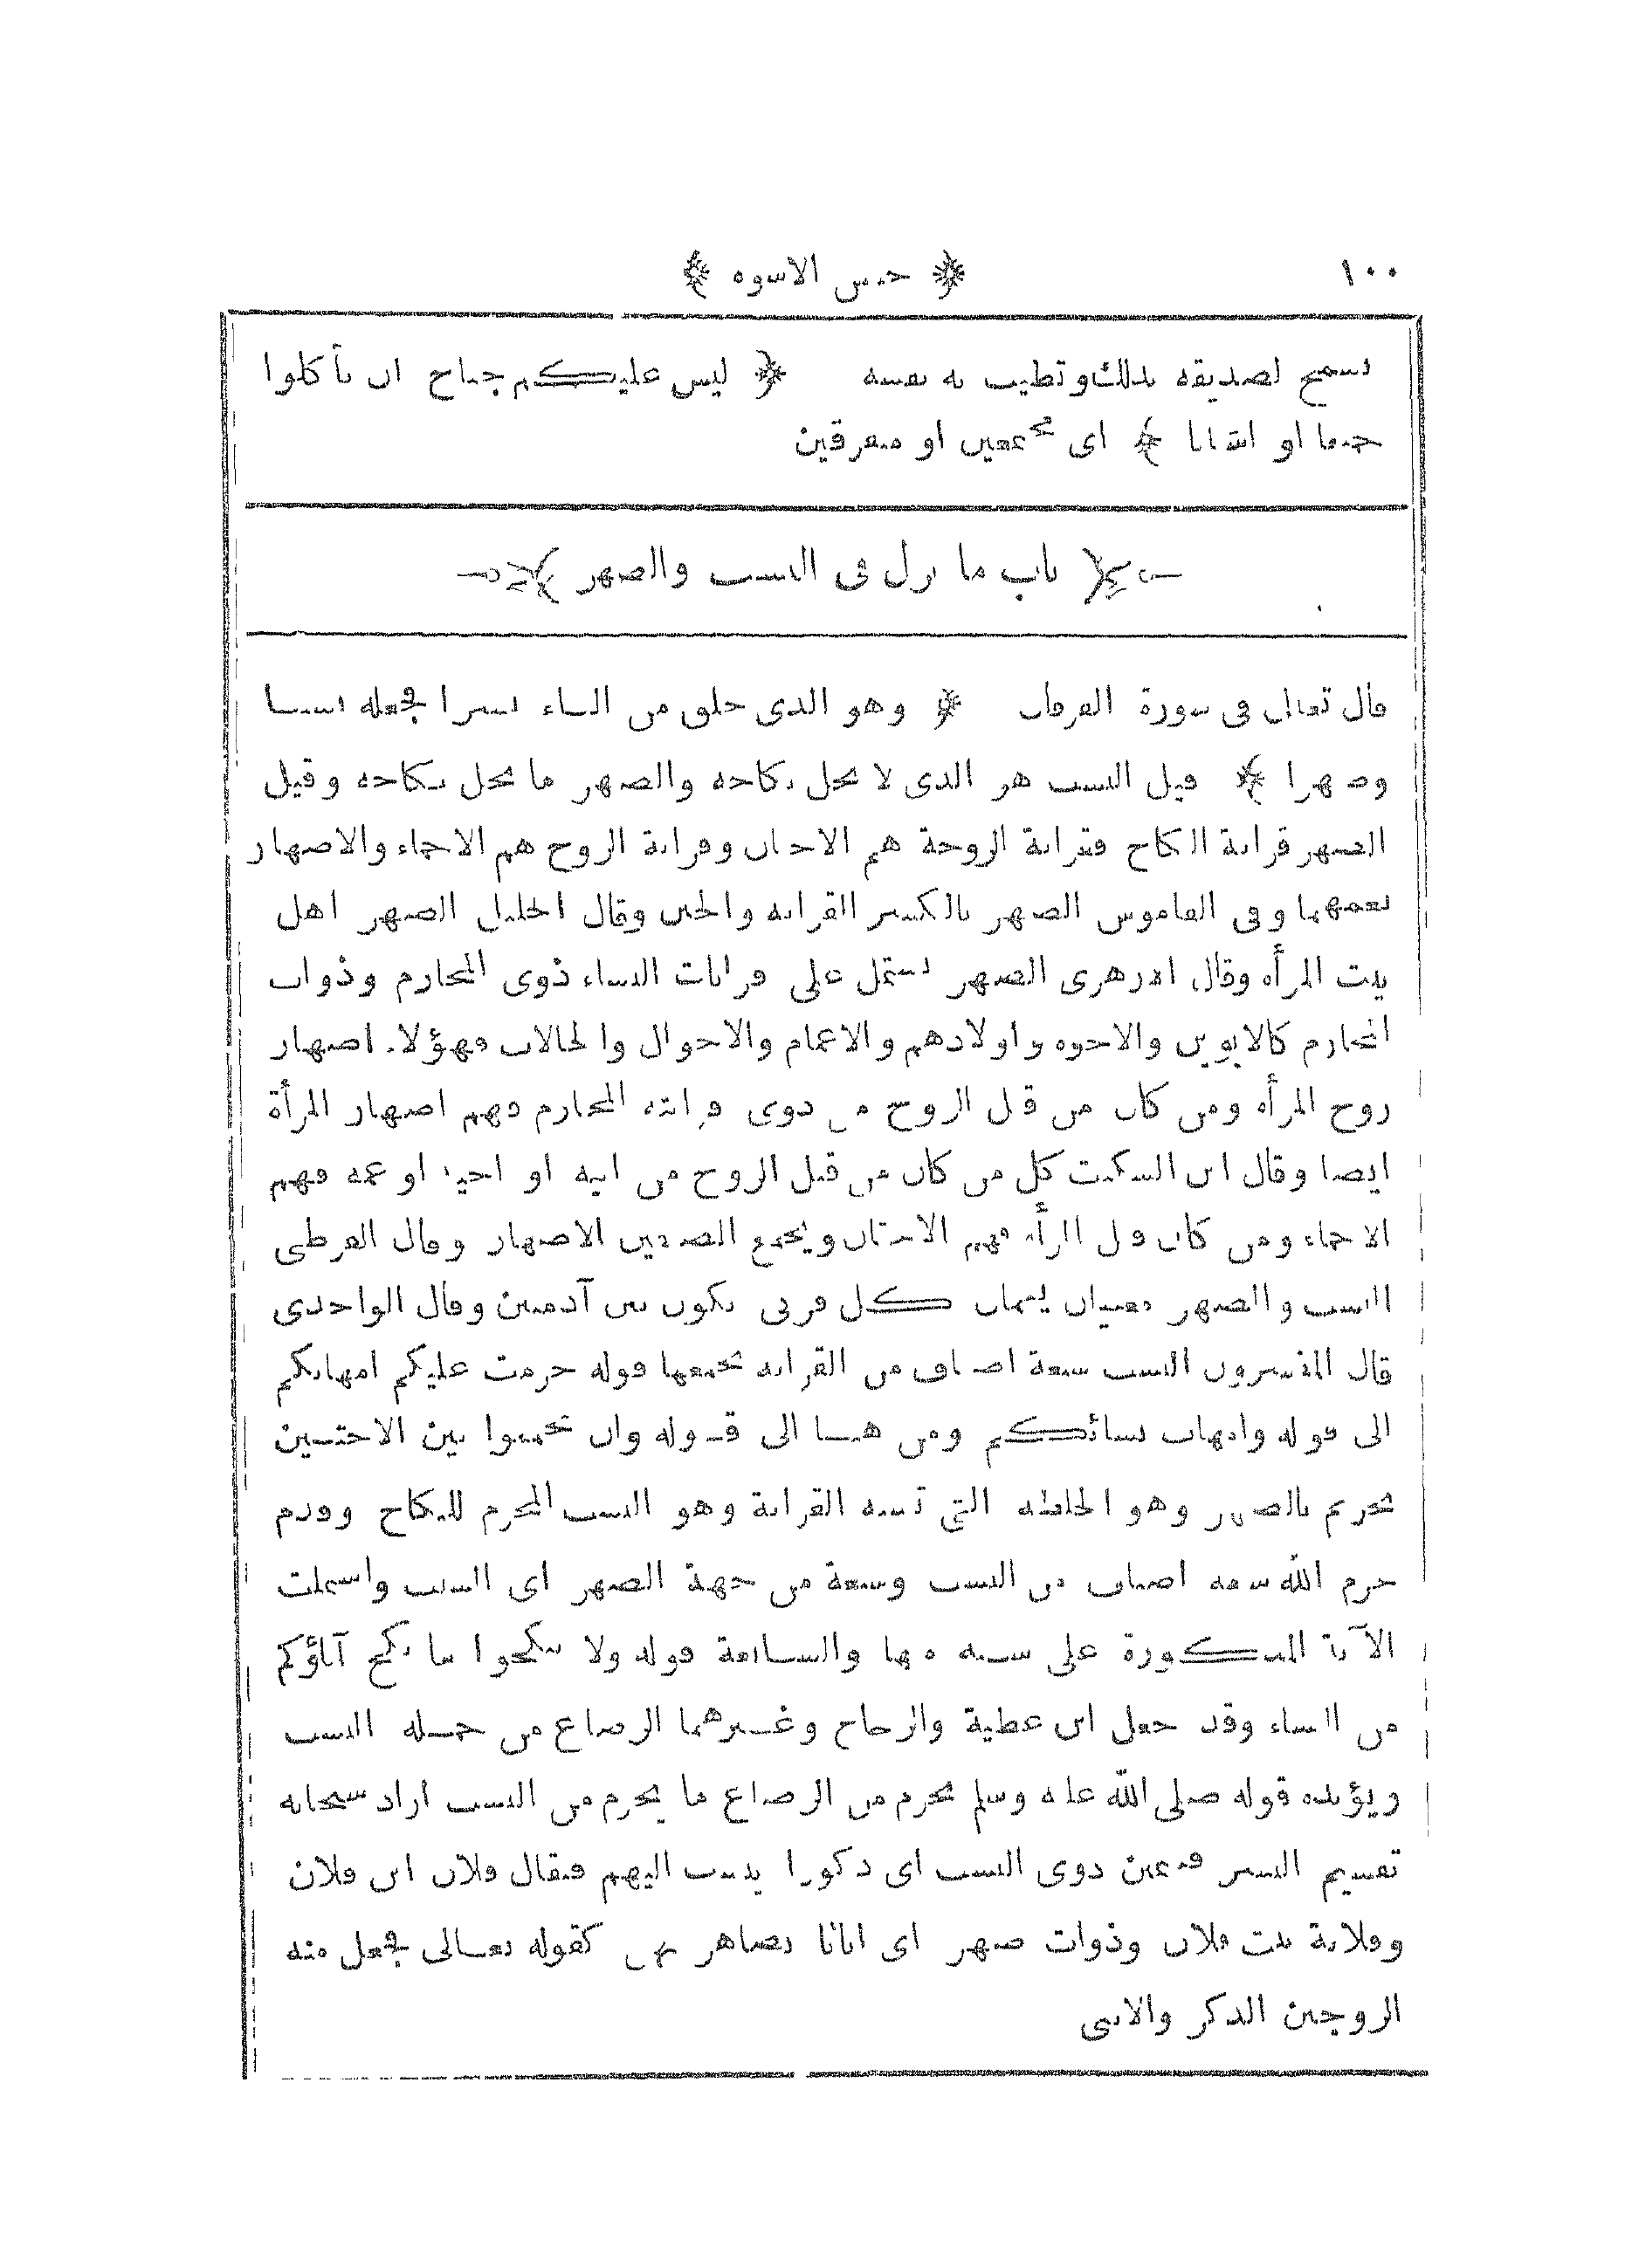 ١٠٠ ﴿ حسن الاسوه ﴾
يسمح لصديقه بذلك وتطيب به نفسه ﴿ ليس عليكم جناح ان تأكلوا
جميعا او اشتاتا ﴾ اى مجتمعين او متفرقين
﴿ باب ما نزل فى النسب والصهر ﴾
قال تعالى فى سورة الفرقان ﴿ وهو الذى خلق من الماء بشرا فجعله نسبا
وصهرا ﴾ قيل النسب هو الذى لا يحل نكاحه والصهر ما يحل نكاحه وقيل
الصهر قرابة النكاح فقرابة الزوجة هم الاختان وقرابة الزوج هم الاحماء والاصهار
تعمهما وفى القاموس الصهر بالكسر القرابه والختن وقال الخليل الصهر اهل
بيت المرأه وقال الازهرى الصهر يشتمل على قرابات النساء ذوى المحارم وذوات
المحارم كالابوين والاخوه واولادهم والاعمام والاخوال والخالات فهؤلاء اصهار
زوج المرأه ومن كان من قبل الزوج من ذوى قرابته المحارم فهم اصهار المرأة
ايضا وقال ابن السكيت كل من كان من قبل الزوج من ابيه او اخيه او عمه فهم
الاحماء ومن كان قبل المرأه فهم الاختان ويجمع الصنفين الاصهار وقال القرطبى
النسب والصهر معنيان يعمان كل قربى تكون بين آدميين وقال الواحدى
قال المفسرون النسب سبعة اصناف من القرابه يجمعها قوله حرمت عليكم امهاتكم
الى قوله وامهات نسائكم ومن هنا الى قوله وان تجمعوا بين الاختين
تحريم بالصهر وهو الخلطه التى تشبه القرابة وهو النسب المحرم للنكاح وقدم
حرم الله سبعه اصناف من النسب وسبعة من جهة الصهر اى السبب واشتملت
الآية المذكورة على سته منها والسابعة قوله ولا تنكحوا ما نكح آباؤكم
من النساء وقد جعل ابن عطية والزجاج وغيرهما الرضاع من جمله النسب
ويؤيده قوله صلى الله عليه وسلم يحرم من الرضاع ما يحرم من النسب اراد سبحانه
تقسيم البشر قسمين ذوى النسب اى ذكورا ينسب اليهم فيقال فلان ابن فلان
وفلانة بنت فلان وذوات صهر اى اناثا يصاهر بهن كقوله تعالى فجعل منه
الزوجين الذكر والانثى